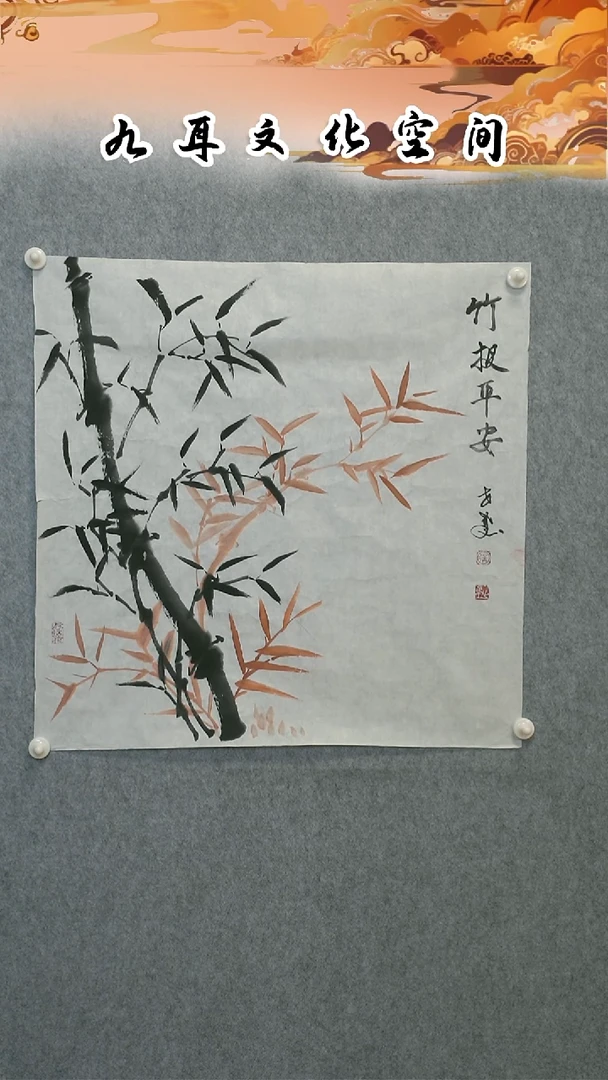 九耳文化空间
竹报平安